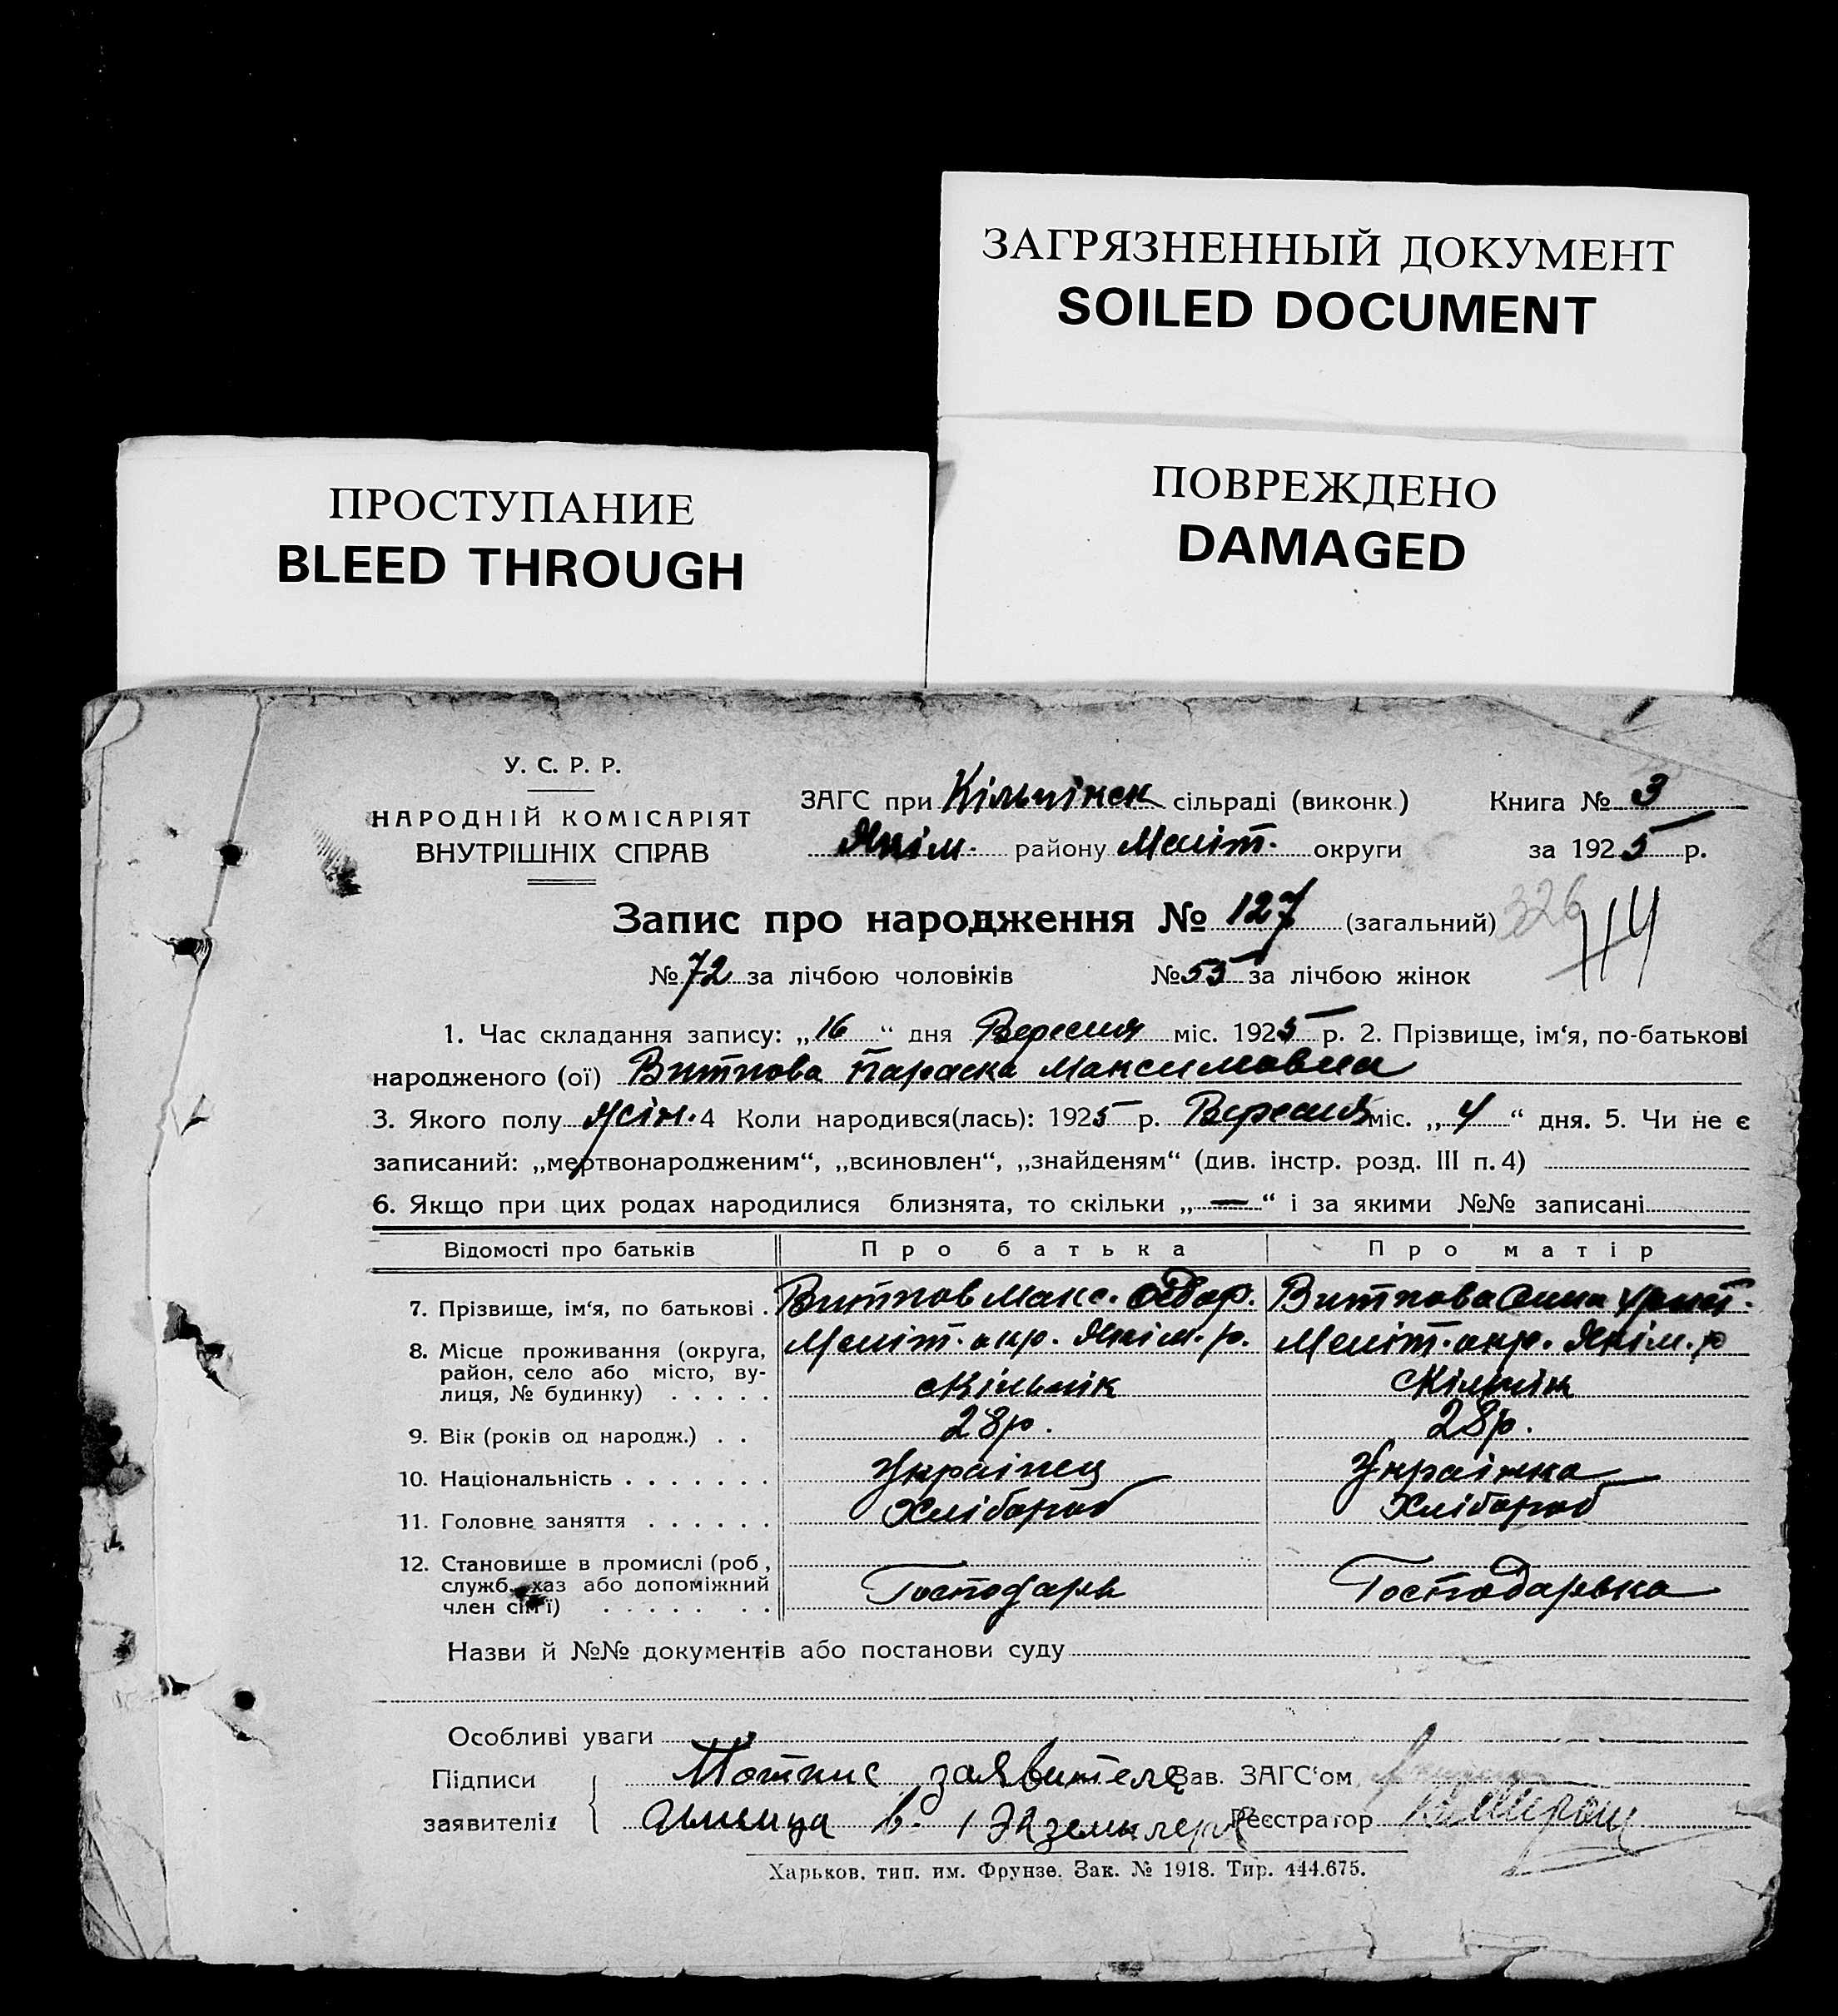 ЗАГРЯЗНЕННЫЙ ДОКУМЕНТ
SOILED DOCUMENT
ПРОСТУПАНИЕ
BLEED THROUGH
ПОВРЕЖДЕНО
DAMAGED
У. С. Р. Р.
НАРОДНІЙ КОМІСАРІЯТ
ВНУТРІШНІХ СПРАВ
ЗАГС при сільраді (виконк.) Книга № 3
Якім. району Меліт. округи за 1925 р.
Запис про народження № 127 (загальний) 326 114
№ 72 за лічбою чоловіків № 55 за лічбою жінок
1. Час складання запису: „16“ дня Вересня міс. 1925 р. 2. Прізвище, ім‘я, по-батькові
народженого (ої) Витпова Параска Максимовна
3. Якого полу жін. 4 Коли народився(лась): 1925 р. Вересня міс. „4“ дня. 5. Чи не є
записаний: „мертвонародженим“, „всиновлен“, „знайденям“ (див. інстр. розд. III п. 4)
6. Якщо при цих родах народилися близнята, то скільки „—“ і за якими №№ записані
Відомості про батьків Про батька Про матір
7. Прізвище, ім‘я, по батькові . Витпов Макс. Федор. Витпова Анна
8. Місце проживання (округа, Меліт. окр. Якім. р. Меліт. окр. Якім. р
район, село або місто, ву-
лиця, № будинку) . . . . .
9. Вік (років од народж.) . . 28 р. 28 р.
10. Національність . . . . . . . Українец Українка
11. Головне заняття . . . . . . Хлібороб Хлібороб
12. Становище в промислі (роб.,
служб. хаз або допоміжний Господарь Господарька
член сім‘ї) . . . . . . .
Назви й №№ документів або постанови суду
Особливі уваги
Підписи Потпис заявителя Зав. ЗАГС‘ом
заявителів в 1 Экземпляре Реєстратор
Харьков. тип. им. Фрунзе. Зак. № 1918. Тир. 444.675.